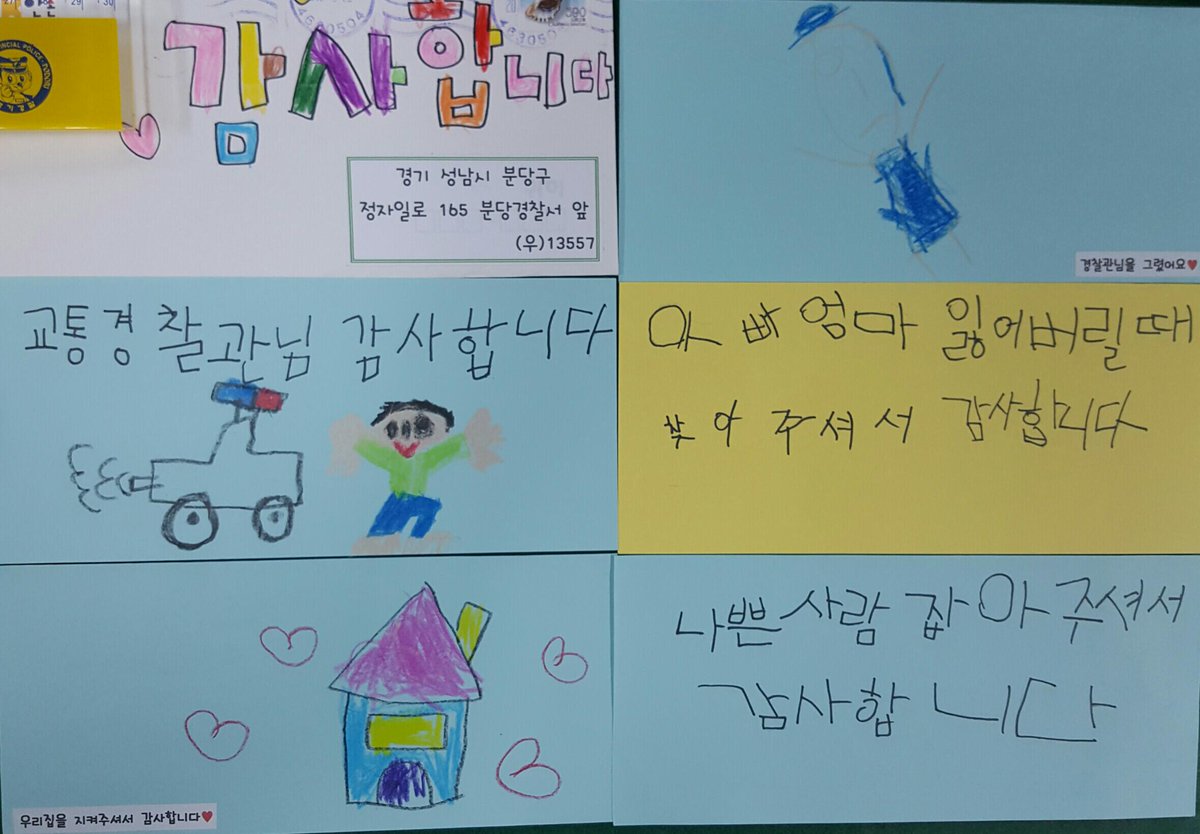 감사합니다
경기 성남시 분당구
정자일로 165 분당경찰서 앞
(우)13557
경찰관님을 그렸어요♥
교통경찰관님 감사합니다
아빠엄마 잃어버릴때
찾아 주셔서 감사합니다
우리집을 지켜주셔서 감사합니다♥
나쁜사람 잡아주셔서
감사합니다